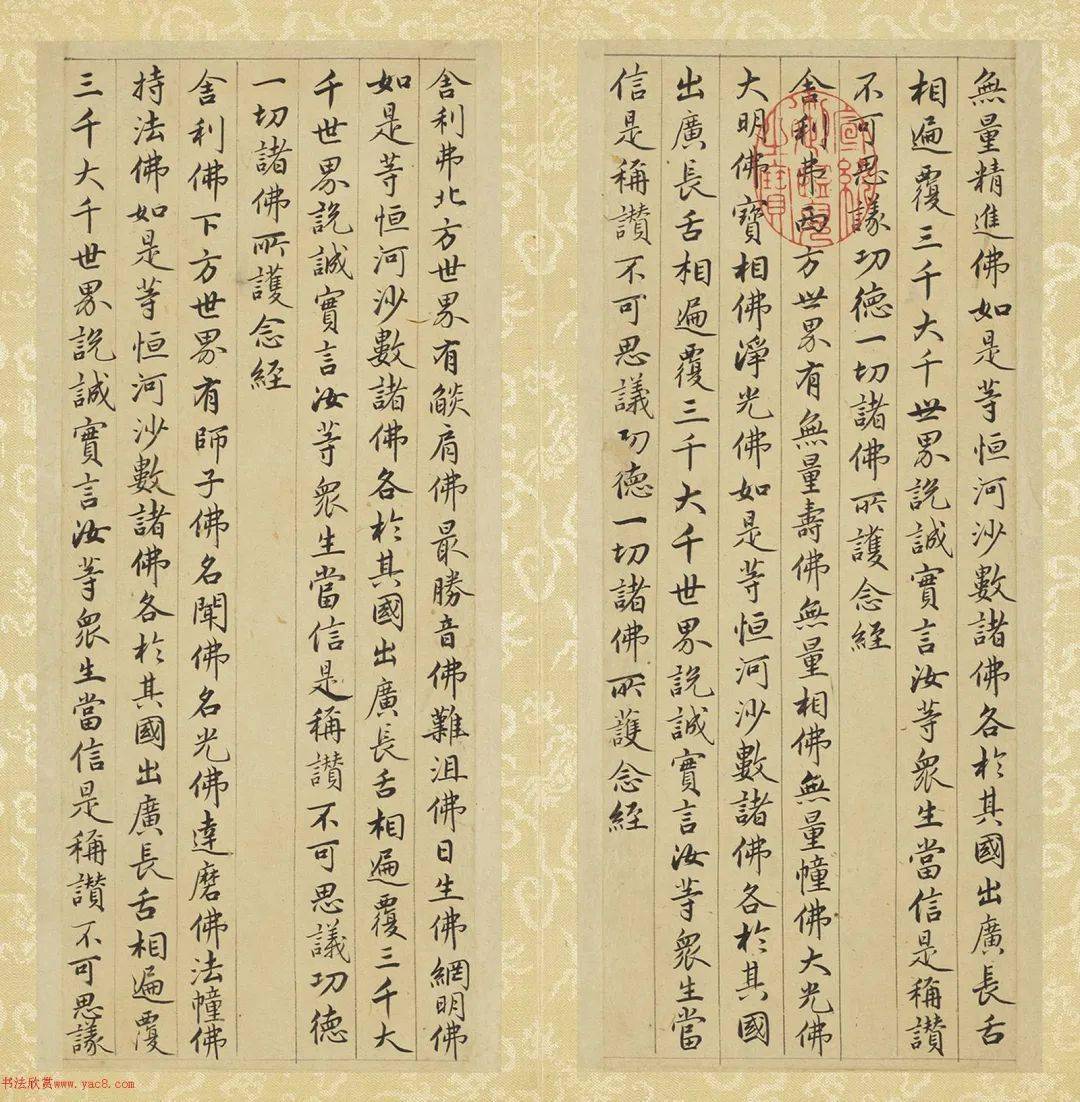 無量精進佛如是等恒河沙數諸佛各於其國出廣長舌
相遍覆三千大千世界說誠實言汝等眾生當信是稱讚
不可思議功德一切諸佛所護念經
舍利弗西方世界有無量壽佛無量相佛無量幢佛大光佛
大明佛寶相佛淨光佛如是等恒河沙數諸佛各於其國
出廣長舌相遍覆三千大千世界說誠實言汝等眾生當
信是稱讚不可思議功德一切諸佛所護念經
舍利弗北方世界有燄肩佛最勝音佛難沮佛日生佛網明佛
如是等恒河沙數諸佛各於其國出廣長舌相遍覆三千大
千世界說誠實言汝等眾生當信是稱讚不可思議功德
一切諸佛所護念經
舍利佛下方世界有師子佛名聞佛名光佛達磨佛法幢佛
持法佛如是等恒河沙數諸佛各於其國出廣長舌相遍覆
三千大千世界說誠實言汝等眾生當信是稱讚不可思議
书法欣赏www.yac8.com